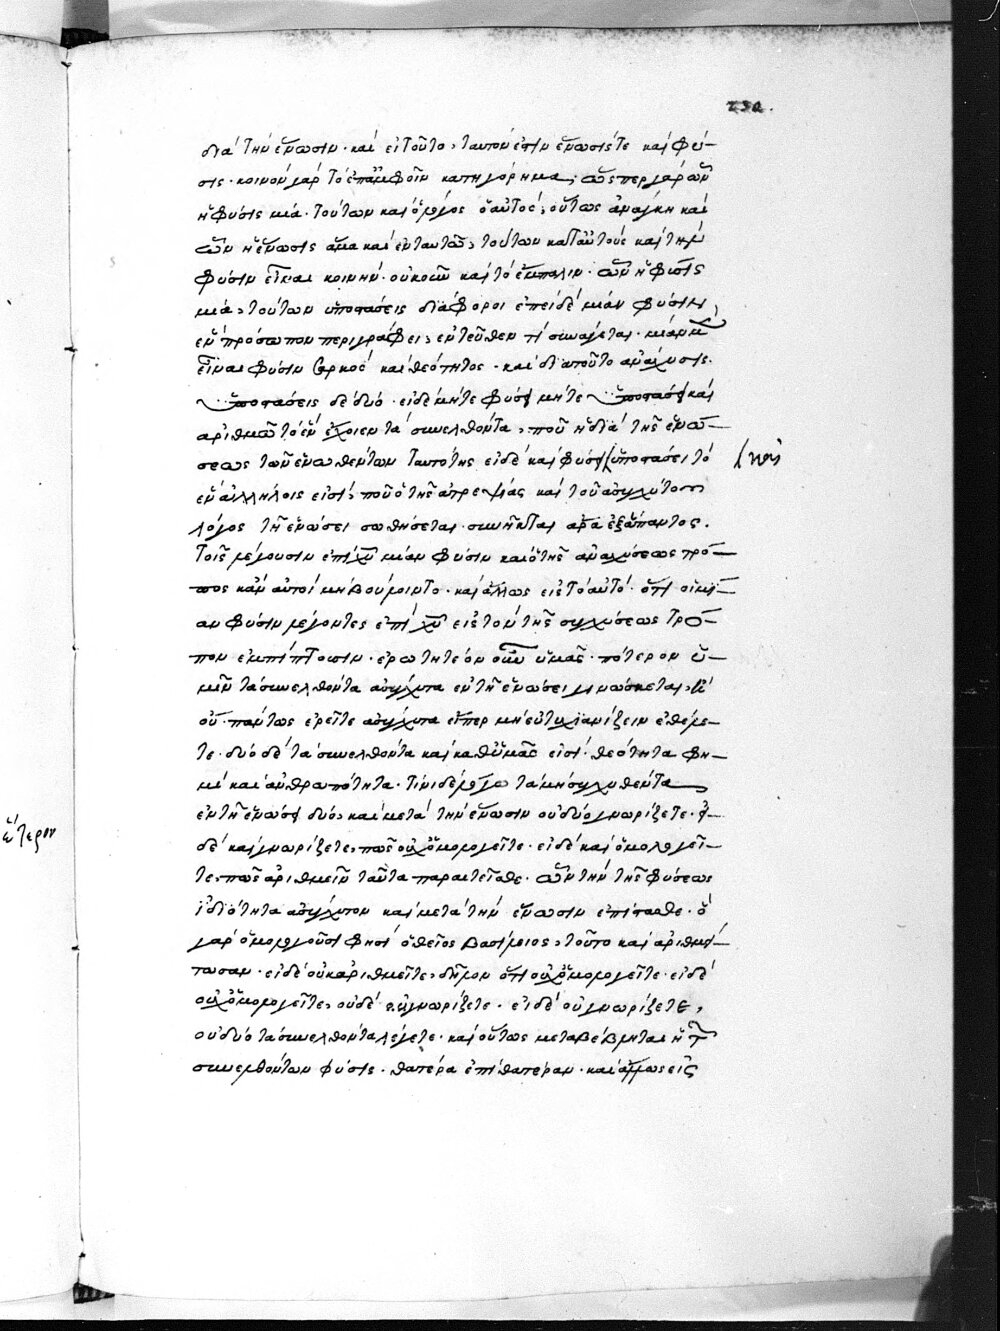 διὰ τὴν ἕνωσιν· καὶ εἰ τοῦτο, ταυτόν ἐστιν ἕνωσίς τε καὶ φύ-
σις· κοινὸν γὰρ τὸ ἐπ' ἀμφοῖν κατηγόρημα, ὥσπερ γὰρ ὧν
ἡ φύσις μία· τούτων καὶ ὁ λόγος ὁ αὐτός, οὕτως ἀνάγκη καὶ
ὧν ἡ ἕνωσις ἅμα καὶ ἐν ταυτῷ, τούτων κατ' αὐτοὺς καὶ τὴν
φύσιν εἶναι κοινήν· οὐκοῦν καὶ τὸ ἔμπαλιν· ὧν ἡ φύσις
μία, τούτων ὑποστάσεις διάφοροι ἐπεὶ δὲ μίαν φύσιν
ἓν πρόσωπον περιγράφει, ἐντεῦθεν τί συνάγεται· μίαν μὲν
εἶναι φύσιν σαρκὸς καὶ θεότητος· καὶ διὰ τοῦτο ἀνάχυσις·
ὑποστάσεις δὲ δύο· εἰ δὲ μήτε φύσει μήτε ὑποστάσει καὶ
ἀριθμῷ τὸ ἓν ἔχοιεν τὰ συνελθόντα, ποῦ ἡ διὰ τῆς ἑνώ-
σεως τῶν ἑνωθέντων ταυτότης εἰ δὲ καὶ φύσει ὑποστάσει τὸ
ἓν ἀλλήλοις εἰσί, ποῦ ὁ τῆς ἀτρεψίας καὶ τοῦ ἀσυγχύτου
λόγος τῇ ἑνώσει σωθήσεται· συνῆκται ἄρα ἐξάπαντος.
τοῖς λέγουσιν ἐπὶ χυ μίαν φύσιν καὶ ὁ τῆς ἀναχύσεως τρό-
πος κἂν αὐτοὶ μὴ βούλοιντο· καὶ ἄλλως εἰς τὸ αὐτό· ὅτι οἱ μί-
αν φύσιν λέγοντες ἐπὶ χυ εἰς τὸν τῆς συγχύσεως τρό-
πον ἐμπίπτουσιν· ἐρωτητέον οὖν ὑμᾶς· πότερον ὑ-
μῖν τὰ συνελθόντα ἀσύγχυτα ἐν τῇ ἑνώσει γινώσκεται, ἢ
οὔ· πάντως ἐρεῖτε ἀσύγχυτα εἴπερ μὴ εὐτυχιανίζειν ἐθέλε-
τε· δύο δὲ τὰ συνελθόντα καὶ καθ' ὑμᾶς εἰσί· θεότητα φη-
μὶ καὶ ἀνθρωπότητα· τίνι δὲ λόγῳ τὰ μὴ συγχυθέντα
ἐν τῇ ἑνώσει δύο, καὶ μετὰ τὴν ἕνωσιν οὐ δύο γνωρίζετε· εἰ
δὲ καὶ γνωρίζετε, πῶς οὐχ ὁμολογεῖτε· εἰ δὲ καὶ ὁμολογεῖ-
τε, πῶς ἀριθμεῖν ταῦτα παραιτεῖσθε· ὧν τὴν τῆς φύσεως
ἰδιότητα ἀσύγχυτον καὶ μετὰ τὴν ἕνωσιν ἐπίστασθε· ὃ
γὰρ ὁμολογοῦσι φησὶ ὁ θεῖος βασίλειος, τοῦτο καὶ ἀριθμεί-
τωσαν· εἰ δὲ οὐκ ἀριθμεῖτε, δῆλον ὅτι οὐχ ὁμολογεῖτε· εἰ δὲ
οὐχ ὁμολογεῖτε, οὐδὲ γνωρίζετε· εἰ δὲ οὐ γνωρίζετε,
οὐ δύο τὰ συνελθόντα λέγετε· καὶ οὕτως μεταβέβληται ἡ τῶν
συνελθόντων φύσις· θατέρα ἐπὶ θατέραν· καὶ ἄλλως εἰς
ἕτερον